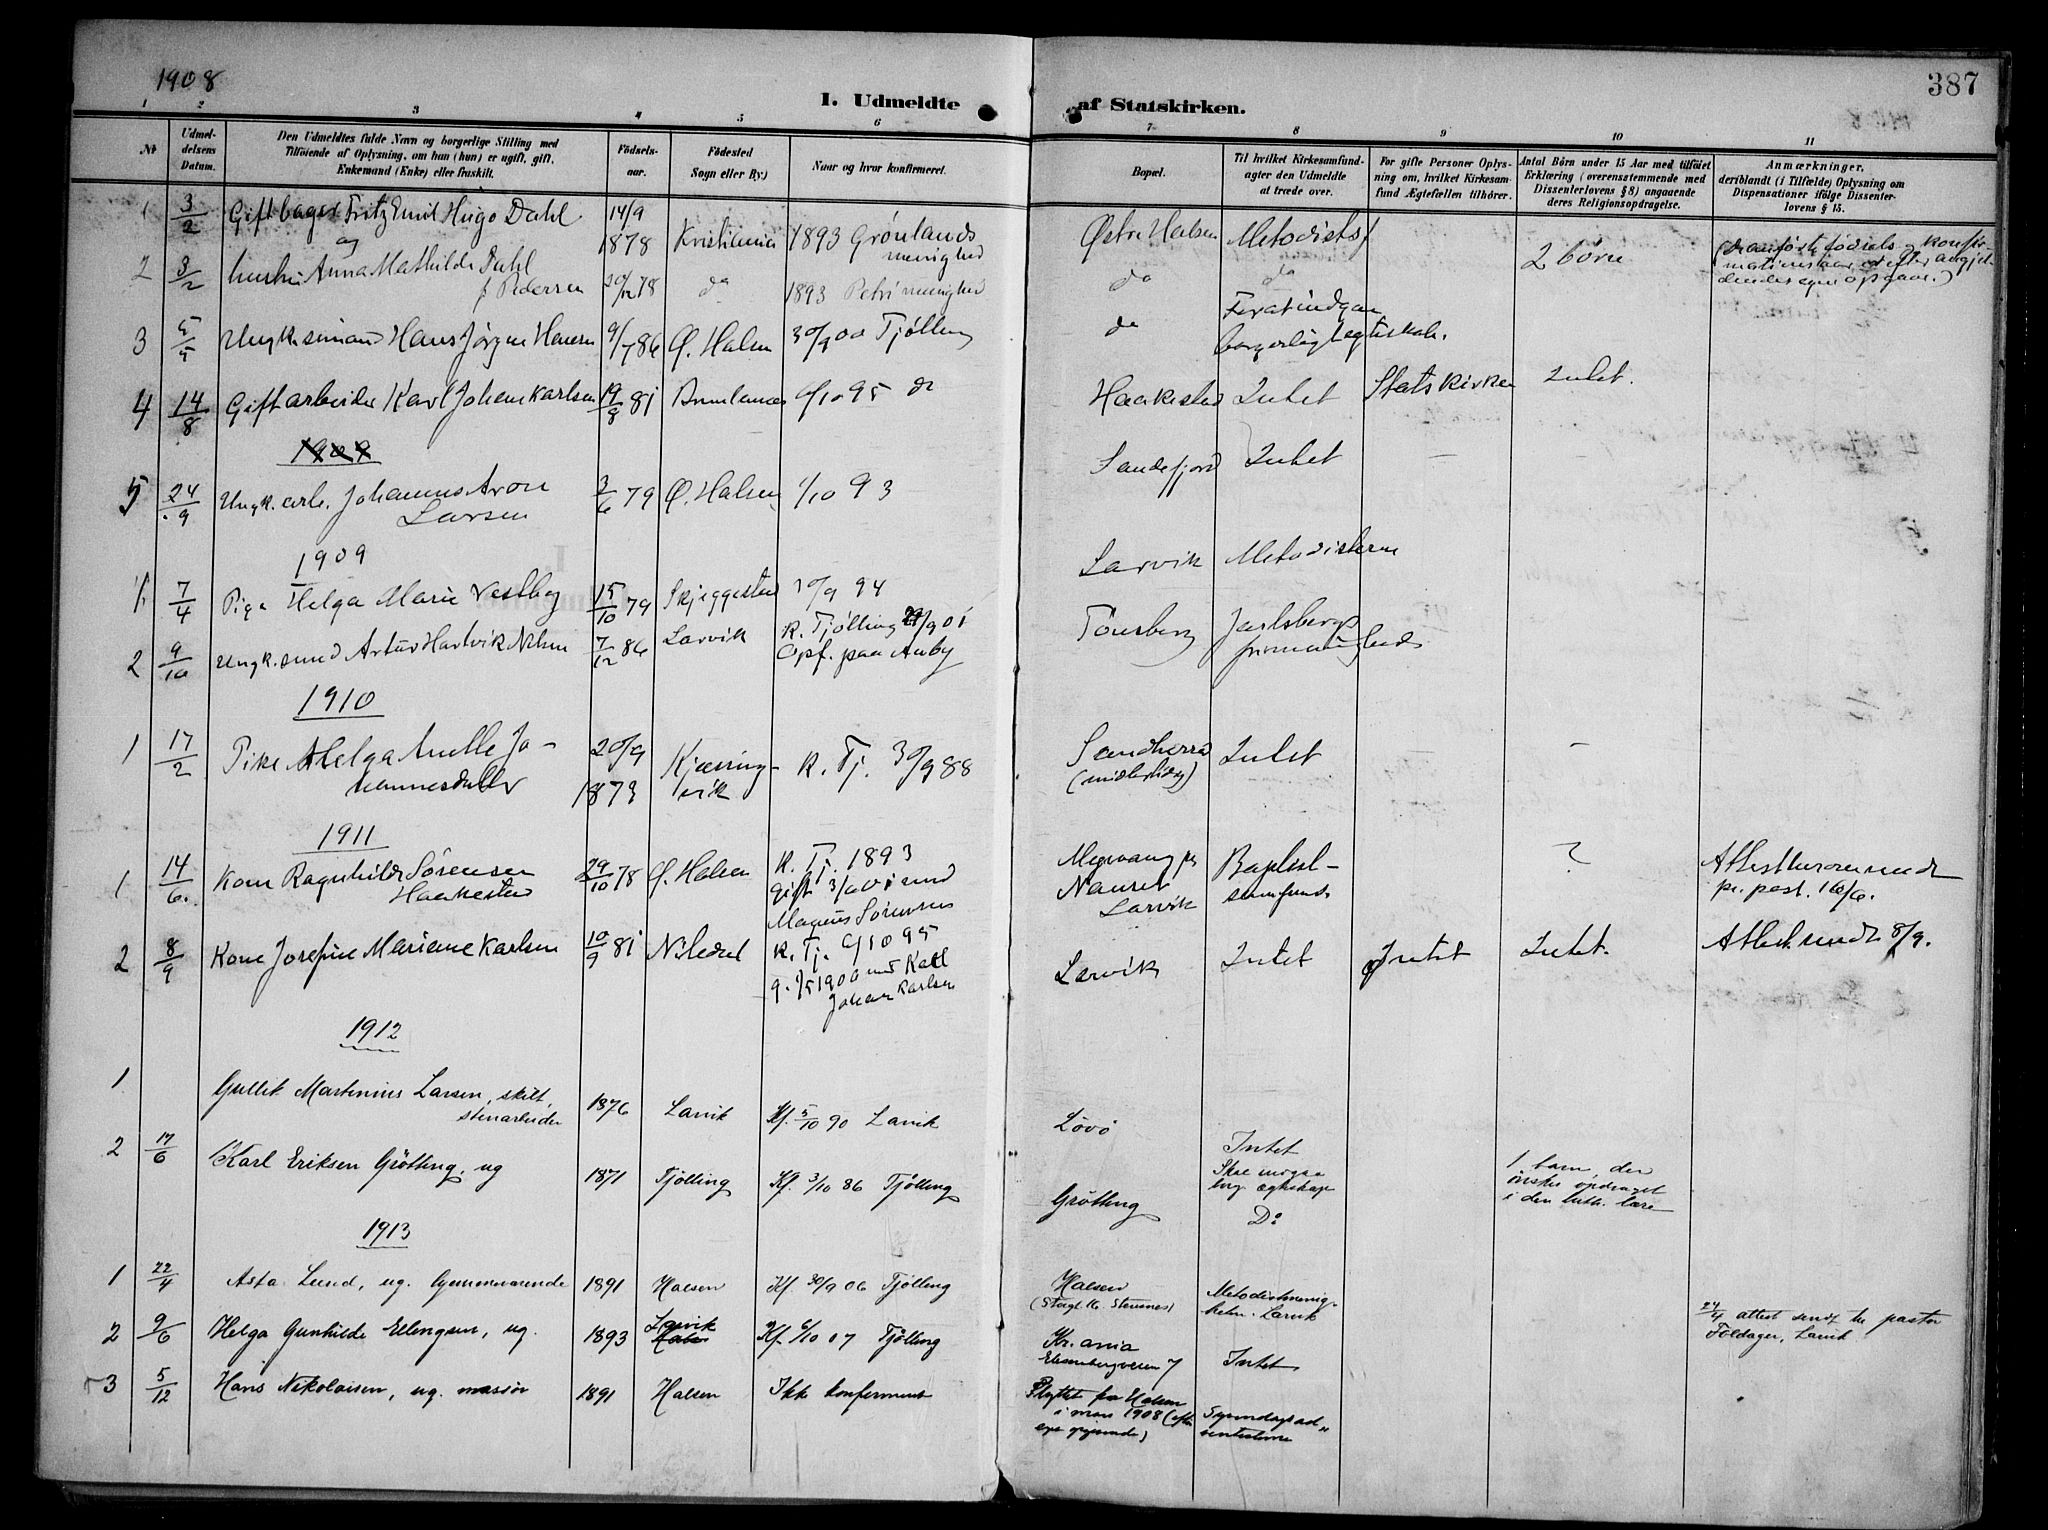 1908
387
I. Udmeldte af Statskirken.
1 2 3 4 5 6 7 8 9 10 11
Nr.
Udmeldelsens Datum.
Den Udmeldtes fulde Navn og borgerlige Stilling med
Tilføiende af Oplysning, om han (hun) er ugift, gift,
Enkemand (Enke) eller fraskilt.
Fødselsaar.
Fødested
Sogn eller By.)
Naar og hvor konfirmeret.
Bopæl.
Til hvilket Kirkesamfund
agter den Udmeldte
at træde over.
For gifte Personer Oplysning
om, hvilket Kirkesamfund
Ægtefællen tilhører.
Antal Børn under 15 Aar med tilføiet
Erklæring (overensstemmende med
Dissenterlovens § 8) angaaende
deres Religionsopdragelse.
Anmærkninger,
deriblandt (i Tilfælde) Oplysning om
Dispensationer ifølge Dissenterlovens
§ 15.
1 3/2 Gift bager Fritz Emil Hugo Dahl 14/9 1878 Kristiania 1893 Grønlands menighed Østre Halsen Metodistsf 2 børn
og
2 3/2 hustru Anna Mathilde Dahl f. Pedersen 20/12 78 do 1893 Petri menighed do do
3 5/5 Ungk. sømand Hans Jørgen Hansen 9/7 86 Ø. Halsen 30/9 00 Tjølling do For at indgaa borgerligt egteskab.
4 14/8 Gift arbeider Karl Johan Karlsen 19/8 81 Brunlanes 6/10 95 do Haakestad Intet Statskirken Intet.
1909
5 24/9 Ungk. arb. Johannes Aron Larsen 3/6 79 Ø. Halsen 1/10 93 Sandefjord Intet – –
1909
1 7/4 Pige Helga Marie Vestby 15/10 79 Skjeggestad 30/9 94 Larvik Metodisterne
2 9/10 Ungk. smed Artur Hartvik Nilsen 7/12 86 Larvik K. Tjølling 29/9 01 Opf. paa Auby Tønsberg Jarlsberg frimenighed
1910
1 17/2 Pike Helga Amelle Johannesdatter 20/9 1873 Kjæringvik K. Tj. 30/9 88 Sandherred (midlertidig) Intet –
1911
1 14/6. Kone Ragnhilde Sørensen Haakestad 29/10 78 Ø. Halsen K. Tj. 1893 Gift med Magnus Sørensen Nanset Larvik Baptistsamfund ? pr. post. 16/6.
2 8/9 Kone Josefine Mariane Karlsen 10/9 81 K. Tj. 6/10 95 g. 1900 med Karl Johan Karlsen Larvik Intet Intet Intet. Attest sendt 8/9.
1912
1 Gullik Martinius Larsen, skilt, stenarbeider 1876 Larvik Kf. 5/10 90 Larvik Løvø Intet Skal inngaa borg. ægteskap
2 17/6 Karl Eriksen Grøtting, ug 1871 Tjølling Kf. 3/10 86 Tjølling Grøtting Do 1 barn, der ønskes opdraget i den luth. lære
1913
1 22/4 Asta Lund, ug. hjemmeværende 1891 Halsen Kf. 30/9 06 Tjølling Halsen Metodistmenigheten. Larvik 24/4 attest sendt til pastor Foldager, Larvik
2 9/6 Helga Gunhilde Ellingsen, ug. 1893 Larvik Kf. 6/10 07 Tjølling Kr.ania Eilsenbergveien 7 Intet
3 5/12 Hans Nikolaisen, ug. 1891 Halsen Ikke konfirmert Flyttet fra Halsen i mars 1908 (efter eget opgivende) Syvendedagsadventisterne